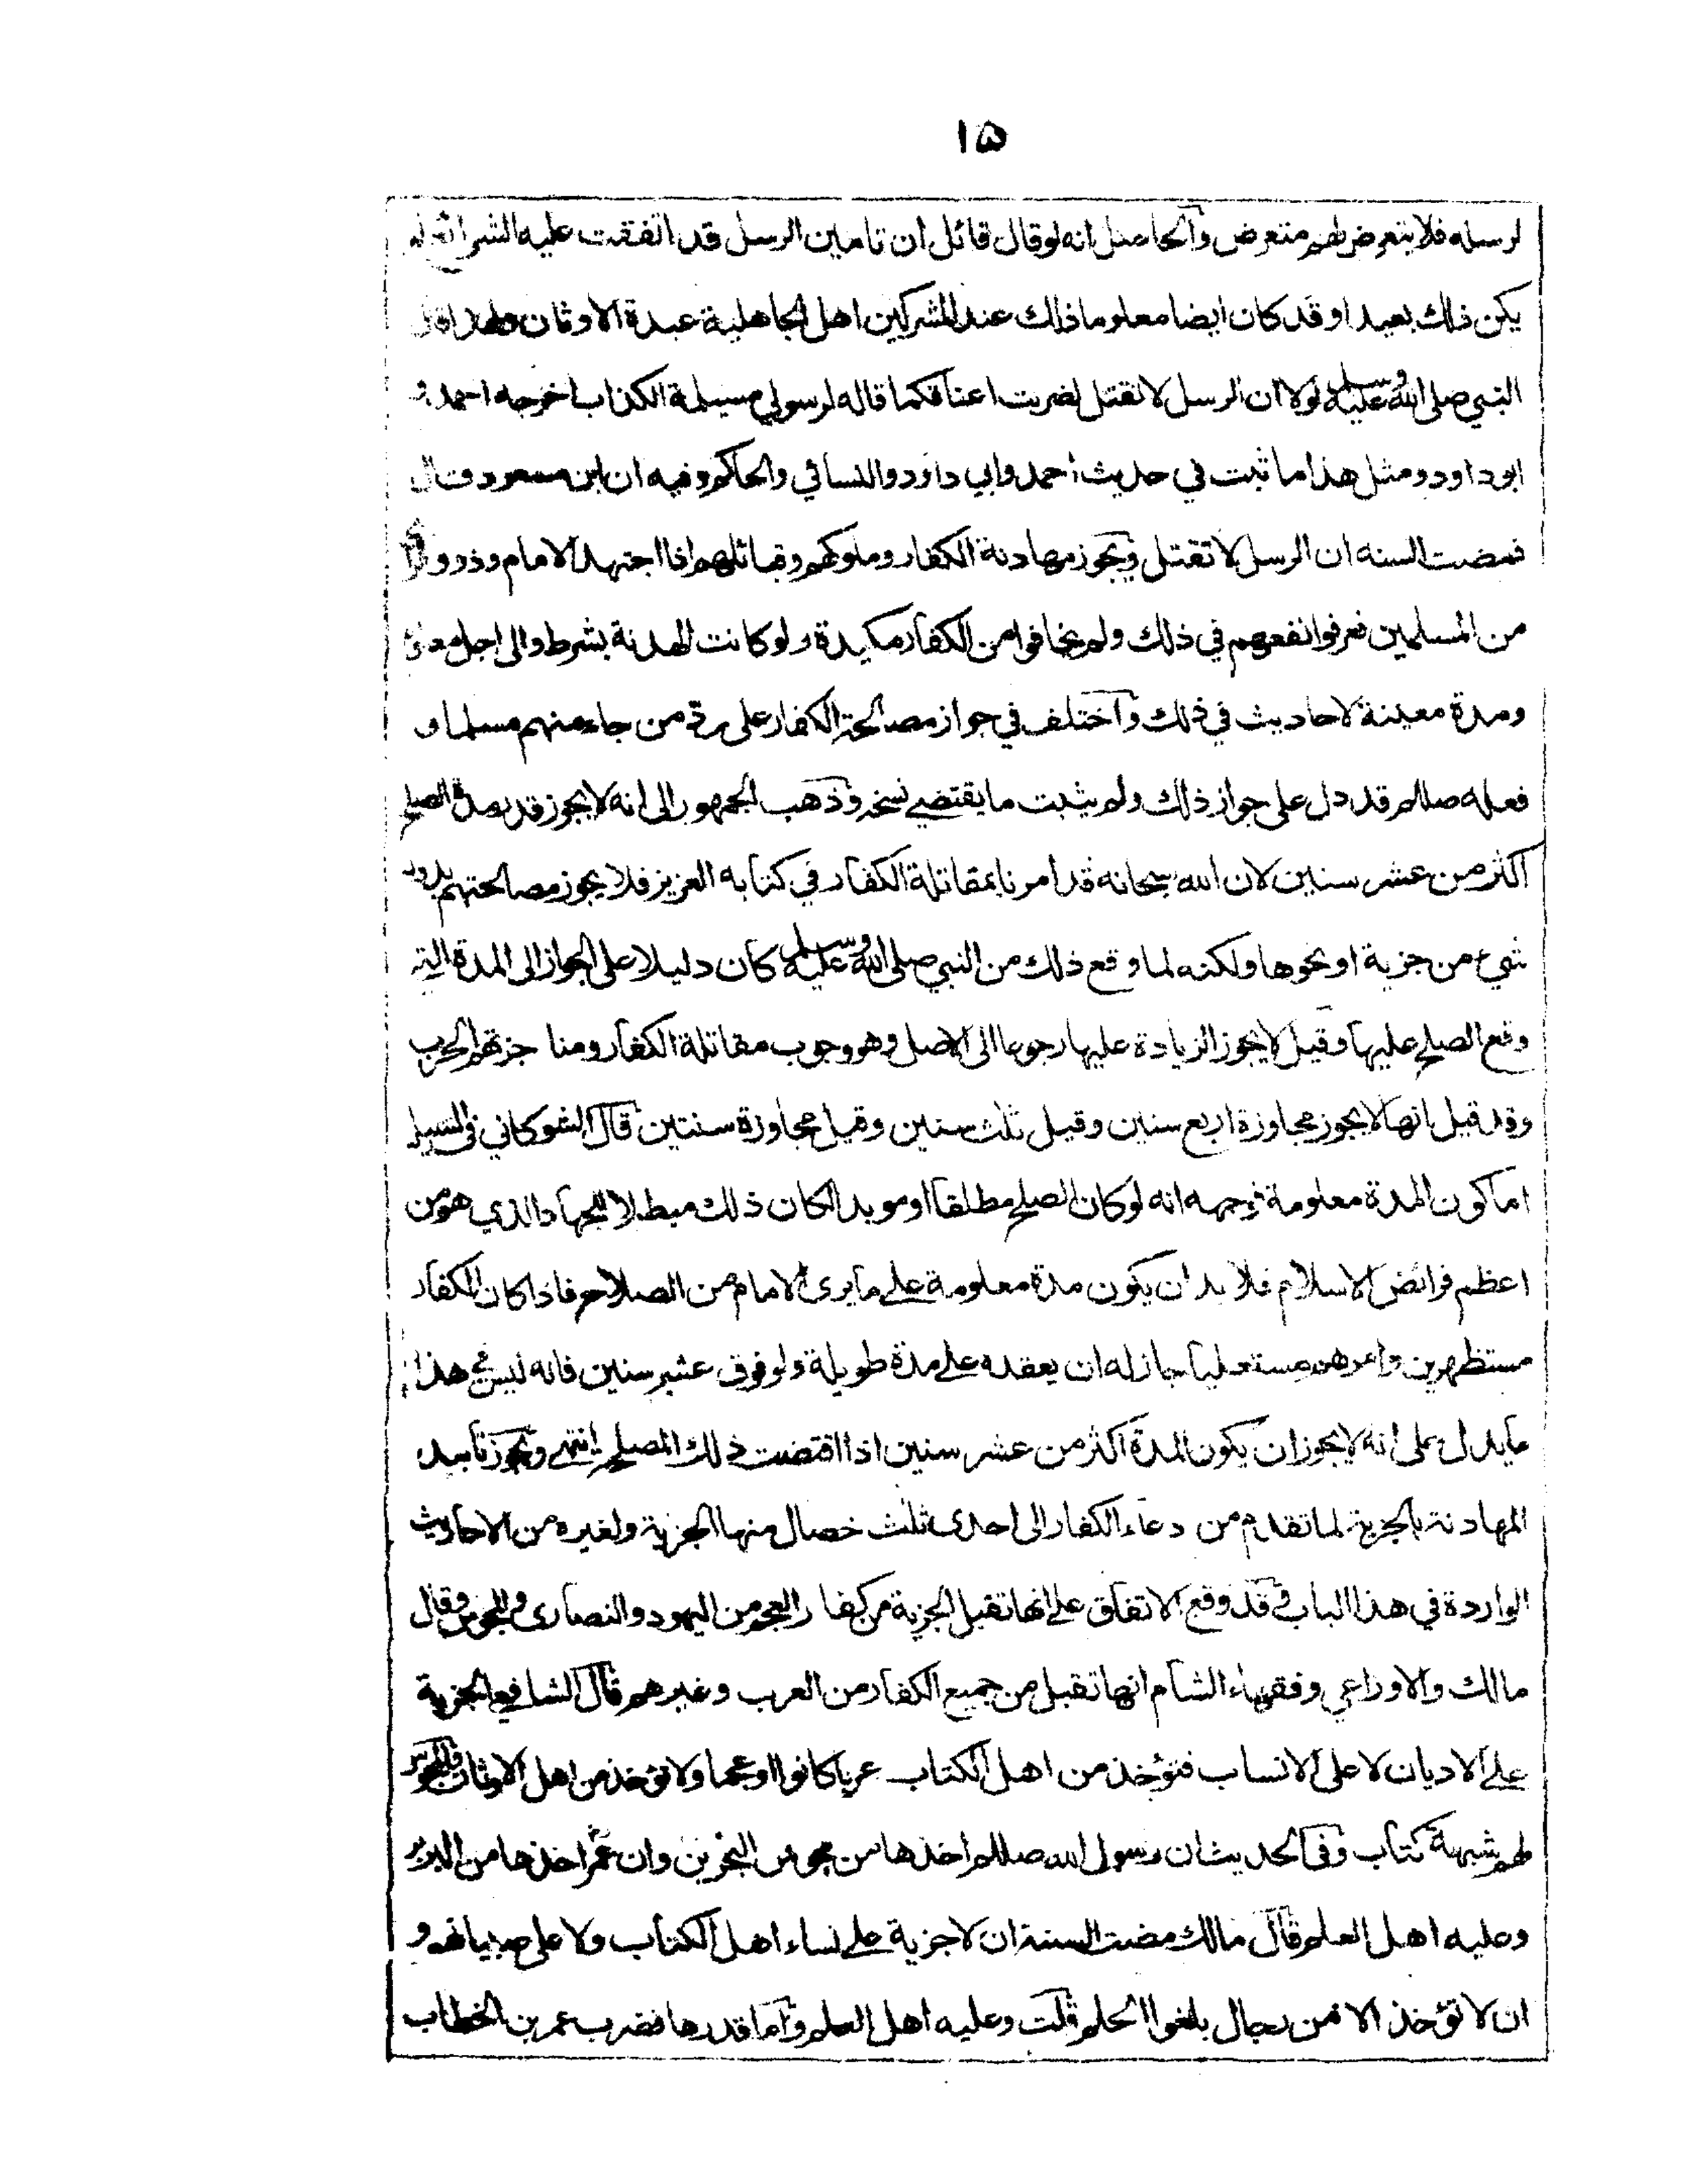 ١٥
لرسله فلا يتعرض لهم متعرض والحاصل انه لو قال قائل ان تامين الرسل قد اتفقت عليه الشرائع لم
يكن ذلك بعيدا وقد كان ايضا معلوما ذلك عند المشركين اهل الجاهلية عبدة الاوثان ولهذا قال
النبي صلى الله عليه وسلم لولا ان الرسل لا تقتل لضربت اعناقكما قاله لرسولي مسيلمة الكذاب اخرجه احمد و
ابو داود ومثل هذا ما ثبت في حديث احمد وابي داود والنسائي والحاكم وفيه ان ابن مسعود قال
فمضت السنه ان الرسل لا تقتل ويجوز مهادنة الكفار وملوكهم وقبائلهم اذا اجتهد الامام وذوو
من المسلمين فعرفوا نفعهم في ذلك ولم يخافوا من الكفار مكيدة ولو كانت الهدنة بشرط والى اجل معلوم
ومدة معينة لاحاديث في ذلك واختلف في جواز مصالحة الكفار على رد من جاء منهم مسلما و
فعله صللم قد دل على جواز ذلك ولم يثبت ما يقتضي نسخه وذهب الجمهور الى انه لا يجوز قدر مدة الصلح
اكثر من عشر سنين لان الله سبحانه قد امرنا بمقاتلة الكفار في كتابه العزيز فلا يجوز مصالحتهم بدون
شيء من جزية او نحوها ولكنه لما وقع ذلك من النبي صلى الله عليه وسلم كان دليلا على الجواز الى المدة التي
وقع الصلح عليها وقيل لا يجوز الزيادة عليها رجوعا الى الاصل وهو وجوب مقاتلة الكفار ومنا جزتهم الحرب
وقد قيل انها لا يجوز مجاوزة اربع سنين وقيل ثلث سنين وقيل مجاوزة سنتين قال الشوكاني في السيل
اما كون المدة معلومة فوجهه انه لو كان الصلح مطلقا او موبدا لكان ذلك مبطلا للجهاد الذي هو من
اعظم فرائض الاسلام فلا بد ان يكون مدة معلومة على ما يرى الامام من الصلاح فاذا كان الكفار
مستظهرين وامرهم مستعليا جاز له ان يعقده على مدة طويلة ولو فوق عشر سنين فانه ليس في هذا
ما يدل على انه لا يجوز ان يكون المدة اكثر من عشر سنين اذا اقتضت ذلك المصلحة انتهى ويجوز تابيد
المهادنة بالجزية لما تقدم من دعاء الكفار الى احدى ثلث خصال منها الجزية ولغيره من الاحاديث
الواردة في هذا الباب وقد وقع الاتفاق على انها تقبل الجزية من كفار العجم من اليهود والنصارى والمجوس وقال
مالك والاوزاعي وفقهاء الشام انها تقبل من جميع الكفار من العرب وغيرهم قال الشافعي الجزية
على الاديان لا على الانساب فتؤخذ من اهل الكتاب عربا كانوا او عجما ولا تؤخذ من اهل الاوثان والمجوس
لهم شبهة كتاب وفي الحديث ان رسول الله صللم اخذها من مجوس البحرين وان عمر اخذها من البربر
وعليه اهل العلم قال مالك مضت السنة ان لا جزية على نساء اهل الكتاب ولا على صبيانهم و
ان لا تؤخذ الا من رجال بلغوا الحلم قلت وعليه اهل العلم واما قدرها فضرب عمر بن الخطاب